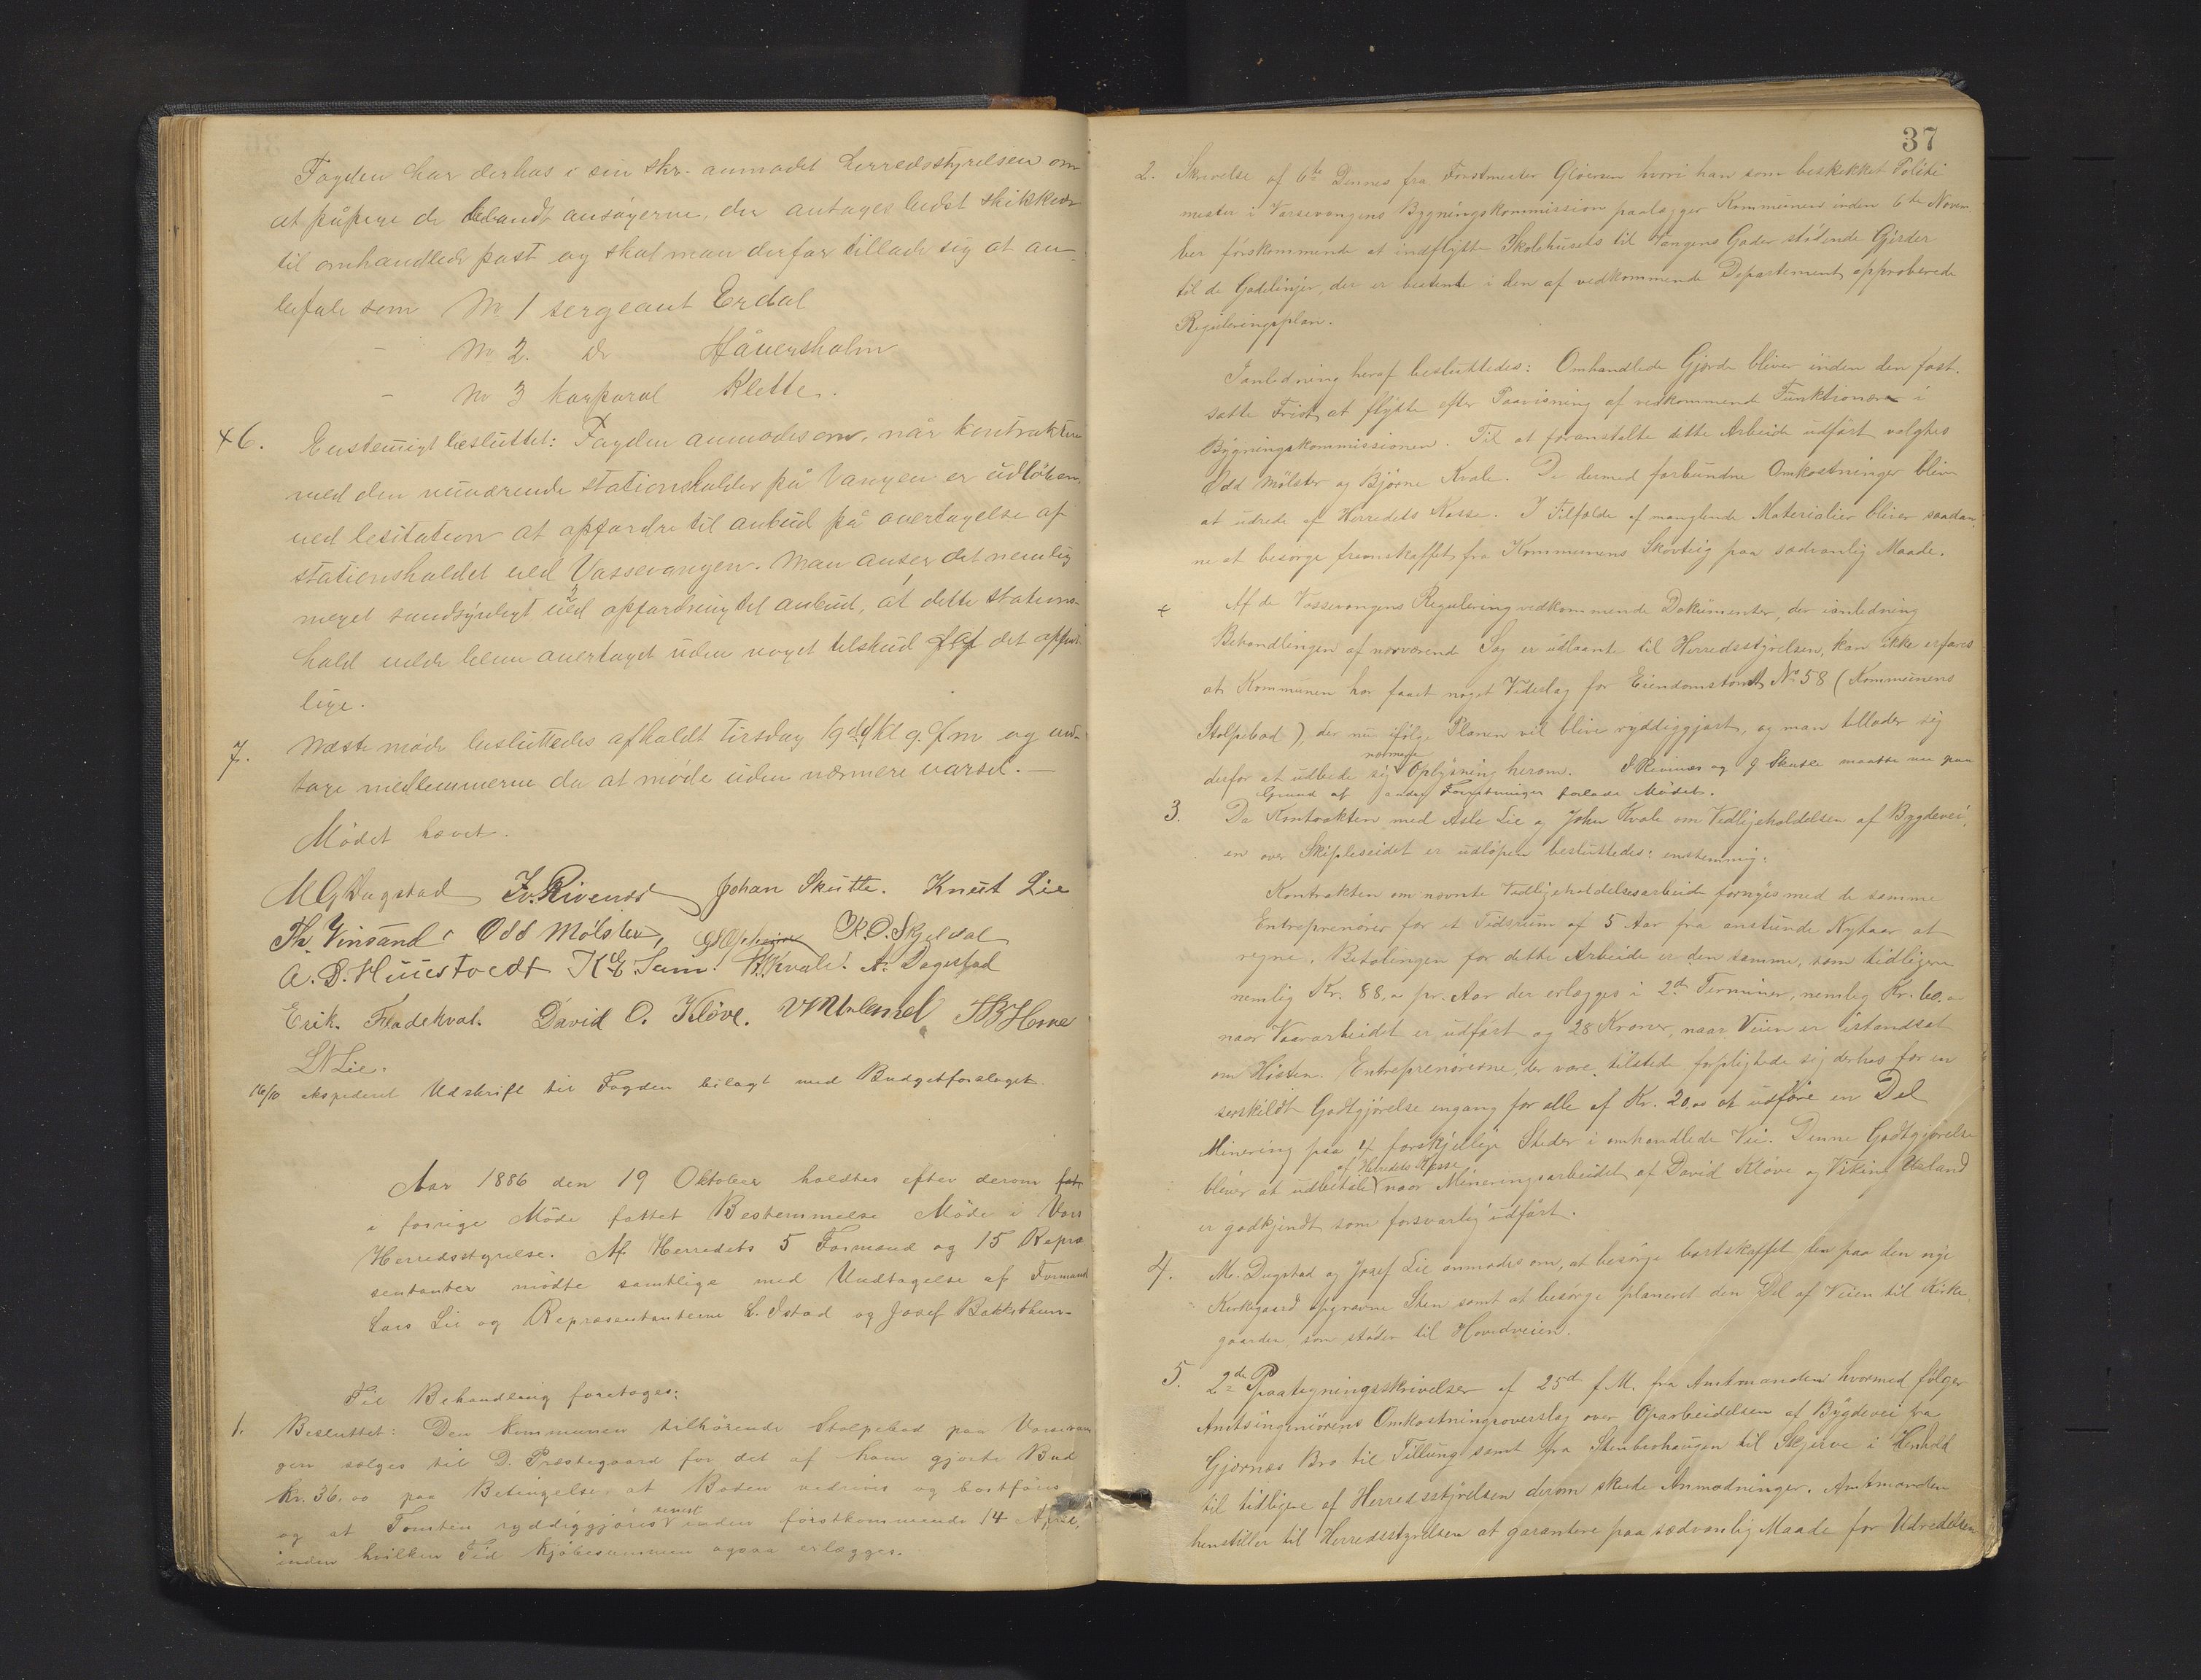 Fogden har derhos i sin skr. anmodet herredsstyrelsen om
at påpege de blandt ansögerne, der antages bedst skikkede
til omhandlede post og skal man derfor tillade sig at an-
befale som No 1 sergeant Erdal
- No 2. Do Håversholm
- No 3 korporal Klette.
+6. Enstemigt besluttet: Fogden anmodes om, når kontrakten
med den nuværende stationsholder på Vangen er udlöben,
ved lesitation at opfordre til anbud på overtagelse af
stationsholdet ved Vossevangen. Man anser det nemlig
meget sandsynligt ved opfordring til anbud, at dette stations-
hold vilde blive overtaget uden noget tilskud af det offent-
lige.
7. Næste møde besluttedes afholdt tirsdag 19de kl 9. fm og
tage medlemmerne da at møde uden nærmere varsel. —
Mødet hævet.
M G Dugstad Iv. Rivenes Johan Skutle. Knut Lie
Th. Vinsand Odd Mölster, G S Opheim K. O. Skjeldal
A. B. Huustvedt K E Sam! B. Kvale! A. Dagestad
Erik Fladekval. David O. Klöve.
L N Lie.
16/10 ekspederet Udskrift til Fogden bilagt med Budgetforslaget.
Aar 1886 den 19 Oktober holdtes efter derom
i forrige Møde fattet Bestemmelse Møde i Voss
Herredsstyrelse. Af Herredets 5 Formænd og 15 Repræ-
sentanter mødte samtlige med Undtagelse af Formand
Lars Lie og Repræsentanterne L. Istad og Josef Bakkethun.
Til Behandling foretoges:
1. Besluttet: Den Kommunen tilhørende Stolpebod paa Vossevan
gen sælges til D. Præstegaard for det af ham gjorte Bud
Kr. 36,00 paa Betingelse, at Boden nedrives og bortføres
og at Tomten ryddiggjøres senest inden førstkommende 14 April,
inden hvilken Tid Kjøbesummen ogsaa erlægges.
37
2. Skrivelse af 6te Dennes fra Forstmester Gløersen hvori han som beskikket Politi
mester i Vossevangens Bygningskommission paalægger Kommunen inden 6te Novem
ber førstkommende at indflytte Skolehusets til Vangens Gader stødende Gjerder
til de Gadelinjer, der er bestemte i den af vedkommende Departement approberede
Reguleringsplan.
Ianledning heraf besluttedes: Omhandlede Gjerde bliver inden den fast-
satte Frist at flytte efter Paavisning af vedkommende Funktionær i
Bygningskommissionen. Til at foranstalte dette Arbeide udført valgtes
Odd Mölster og Bjørne Kvale. De dermed forbundne Omkostninger bliver
at udrede af Herredets Kasse. I Tilfælde af manglende Materialier bliver saadan
ne at besørge fremskaffet fra Kommunens Skovteig paa sædvanlig Maade.
+ Af de Vossevangens Regulering vedkommende Dokumenter, der ianledning
Behandlingen af nærværende Sag er udlaante til Herredsstyrelsen, kan ikke erfares
at Kommunen har faaet noget Vederlag for Eiendomstomt No 58 (Kommunens
Stolpebod), der nu ifølge Planen vil blive ryddiggjort, og man tillader sig
derfor at udbede sig nærmere Oplysning herom. I. Rivenes og J. Skutle maatte nu paa
Grund af andre Forretninger forlade Mødet.
3. Da Kontrakten med Asle Lie og John Kvale om Vedligeholdelsen af Bygdevei-
en over Skipleseidet er udløpen besluttedes: enstemmig:
Kontrakten om nævnte Vedligeholdelsesarbeide fornyes med de samme
Entreprenører for et Tidsrum af 5 Aar fra anstundende Nytaar at
regne. Betalingen for dette Arbeide er den samme, som tidligere
nemlig Kr. 88,00 pr. Aar der erlægges i 2de Terminer, nemlig Kr. 60,00
naar Vaararbeidet er udført og 28 Kroner, naar Veien er istandsat
om Høsten. Entreprenørerne, der vare tilstede forpligtede sig derhos for en
særskildt Godtgjørelse engang for alle af Kr. 20,00 at udføre en Del
Minering paa 4 forskjellige Steder i omhandlede Vei. Denne Godtgjørelse
bliver at udbetale af Herredets Kasse naar Mineringsarbeidet af David Kløve og Viking Væland
er godkjendt som forsvarlig udført.
4. M. Dugstad og Josef Lie anmodes om, at besørge bortskaffet den paa den nye
Kirkegaard opgravne Sten samt at besørge planeret den Del af Veien til Kirke
gaarden, som støder til Hovedveien.
5. 2de Paategningsskrivelser af 25de f. M. fra Amtmanden hvormed følger
Amtsingeniørens Omkostningsoverslag over Oparbeidelsen af Bygdevei fra
Gjernes Bro til Tillung samt fra Stenbrohaugen til Skjerve i Henhold
til tidligere af Herredsstyrelsen derom skeede Anmodninger. Amtmanden
henstiller til Herredsstyrelsen at garantere paa sædvanlig Maade for Udredelsen